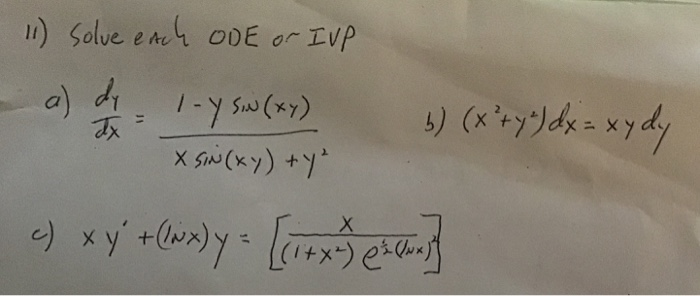 11) Solve each ODE or IVP
a) dy/dx = (1 - y sin(xy)) / (x sin(xy) + y²)
b) (x² + y²)dx = xy dy
c) xy' + (lnx)y = [x / ((1+x²) e^(½(lnx)²))]